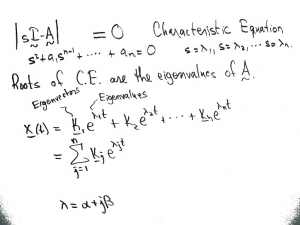 |sI-A| = 0 Characteristic Equation
s²+a₁sⁿ⁻¹+....+aₙ=0 s=λ₁, s=λ₂, ... s=λₙ
Roots of C.E. are the eigenvalues of A.
Eigenvectors Eigenvalues
x(t) = K₁e^λ₁t + K₂e^λ₂t + ... + Kₙe^λₙt
= Σⁿⱼ₌₁ Kⱼe^λⱼt
λ = α+jβ